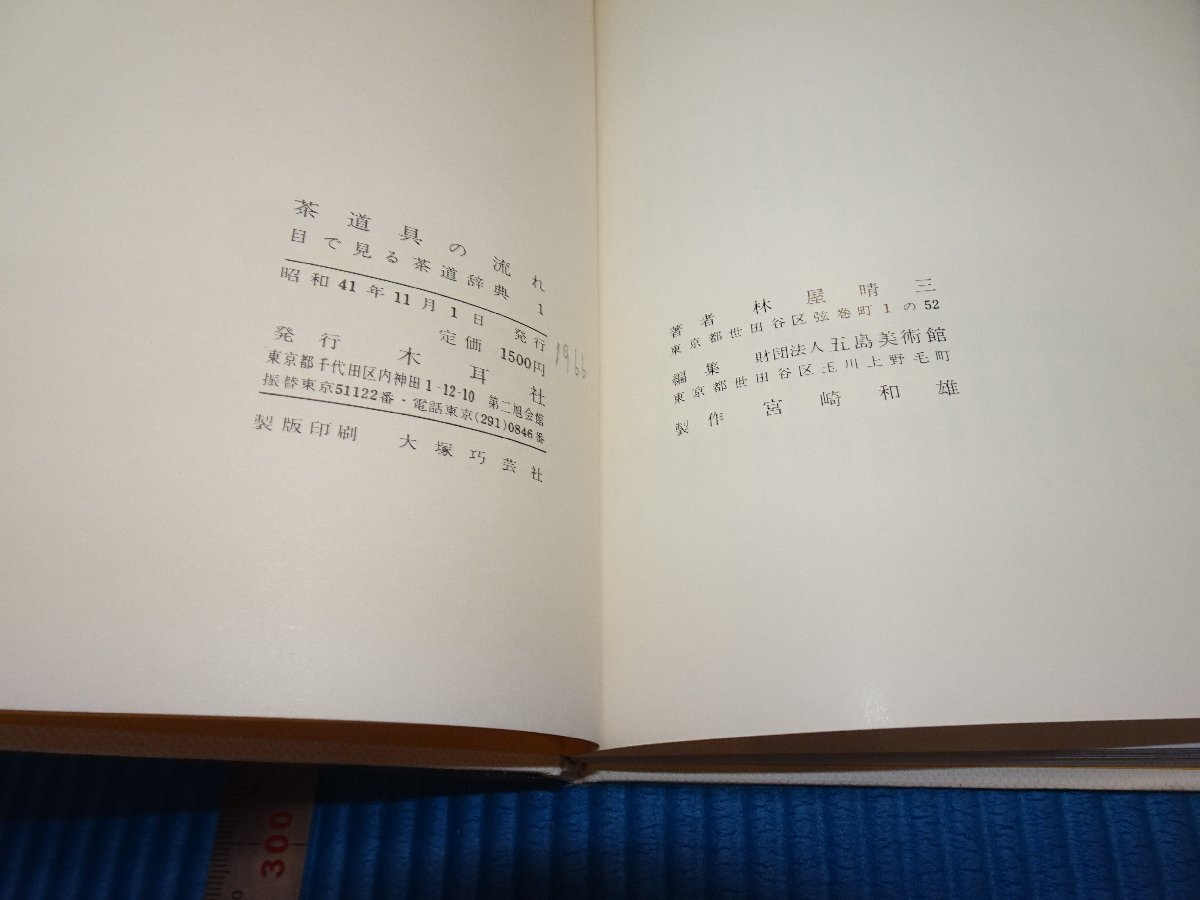 茶道具の流れ
目で見る茶道辞典 1
昭和41年11月1日 発行
定価 1500円
1966
発行 木耳社
東京都千代田区内神田1・12-10 第二旭会館
振替東京51122番・電話東京(291)0846番
製版印刷 大塚巧芸社
著者 林屋晴三
東京都世田谷区弦巻町1の52
編集 財団法人五島美術館
東京都世田谷区玉川上野毛町
製作 宮崎和雄
300